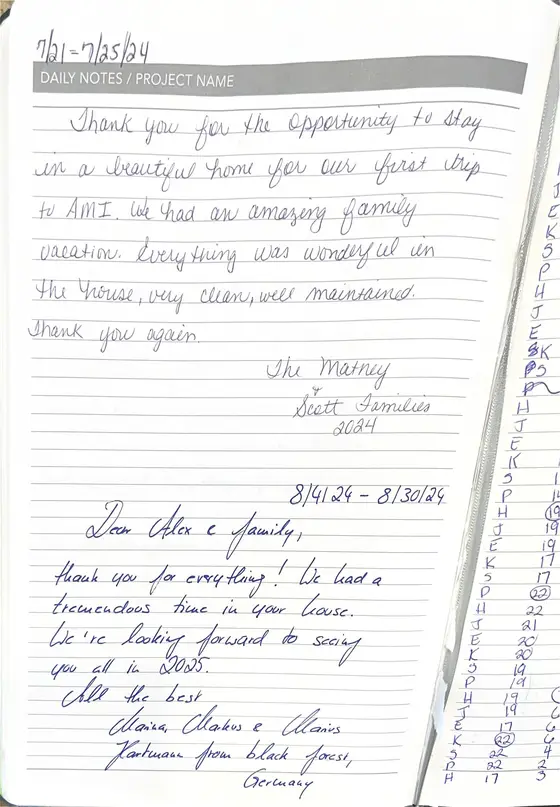 7/21-7/25/24
DAILY NOTES / PROJECT NAME
Thank you for the opportunity to stay
in a beautiful home for our first trip
to AMI. We had an amazing family
vacation. Everything was wonderful in
the house, very clean, well maintained.
Thank you again.
The Matney
&
Scott Families
2024
8/4/24 - 8/30/24
Dear Alex & family,
thank you for everything! We had a
tremendous time in your house.
We're looking forward to seeing
you all in 2025.
All the best
Marina, Markus & Marius
Hartmann from black forest,
Germany
J
E
K
S
P
H
J
E
K
S
P
H
J
E
K
S
P
H 19
J 19
E 19
K 17
S 17
P 22
H 22
J 21
E 20
K 20
S 19
P 19
H 19
J 19
E 17
K 22
S 22 4
P 22 2
H 17 3